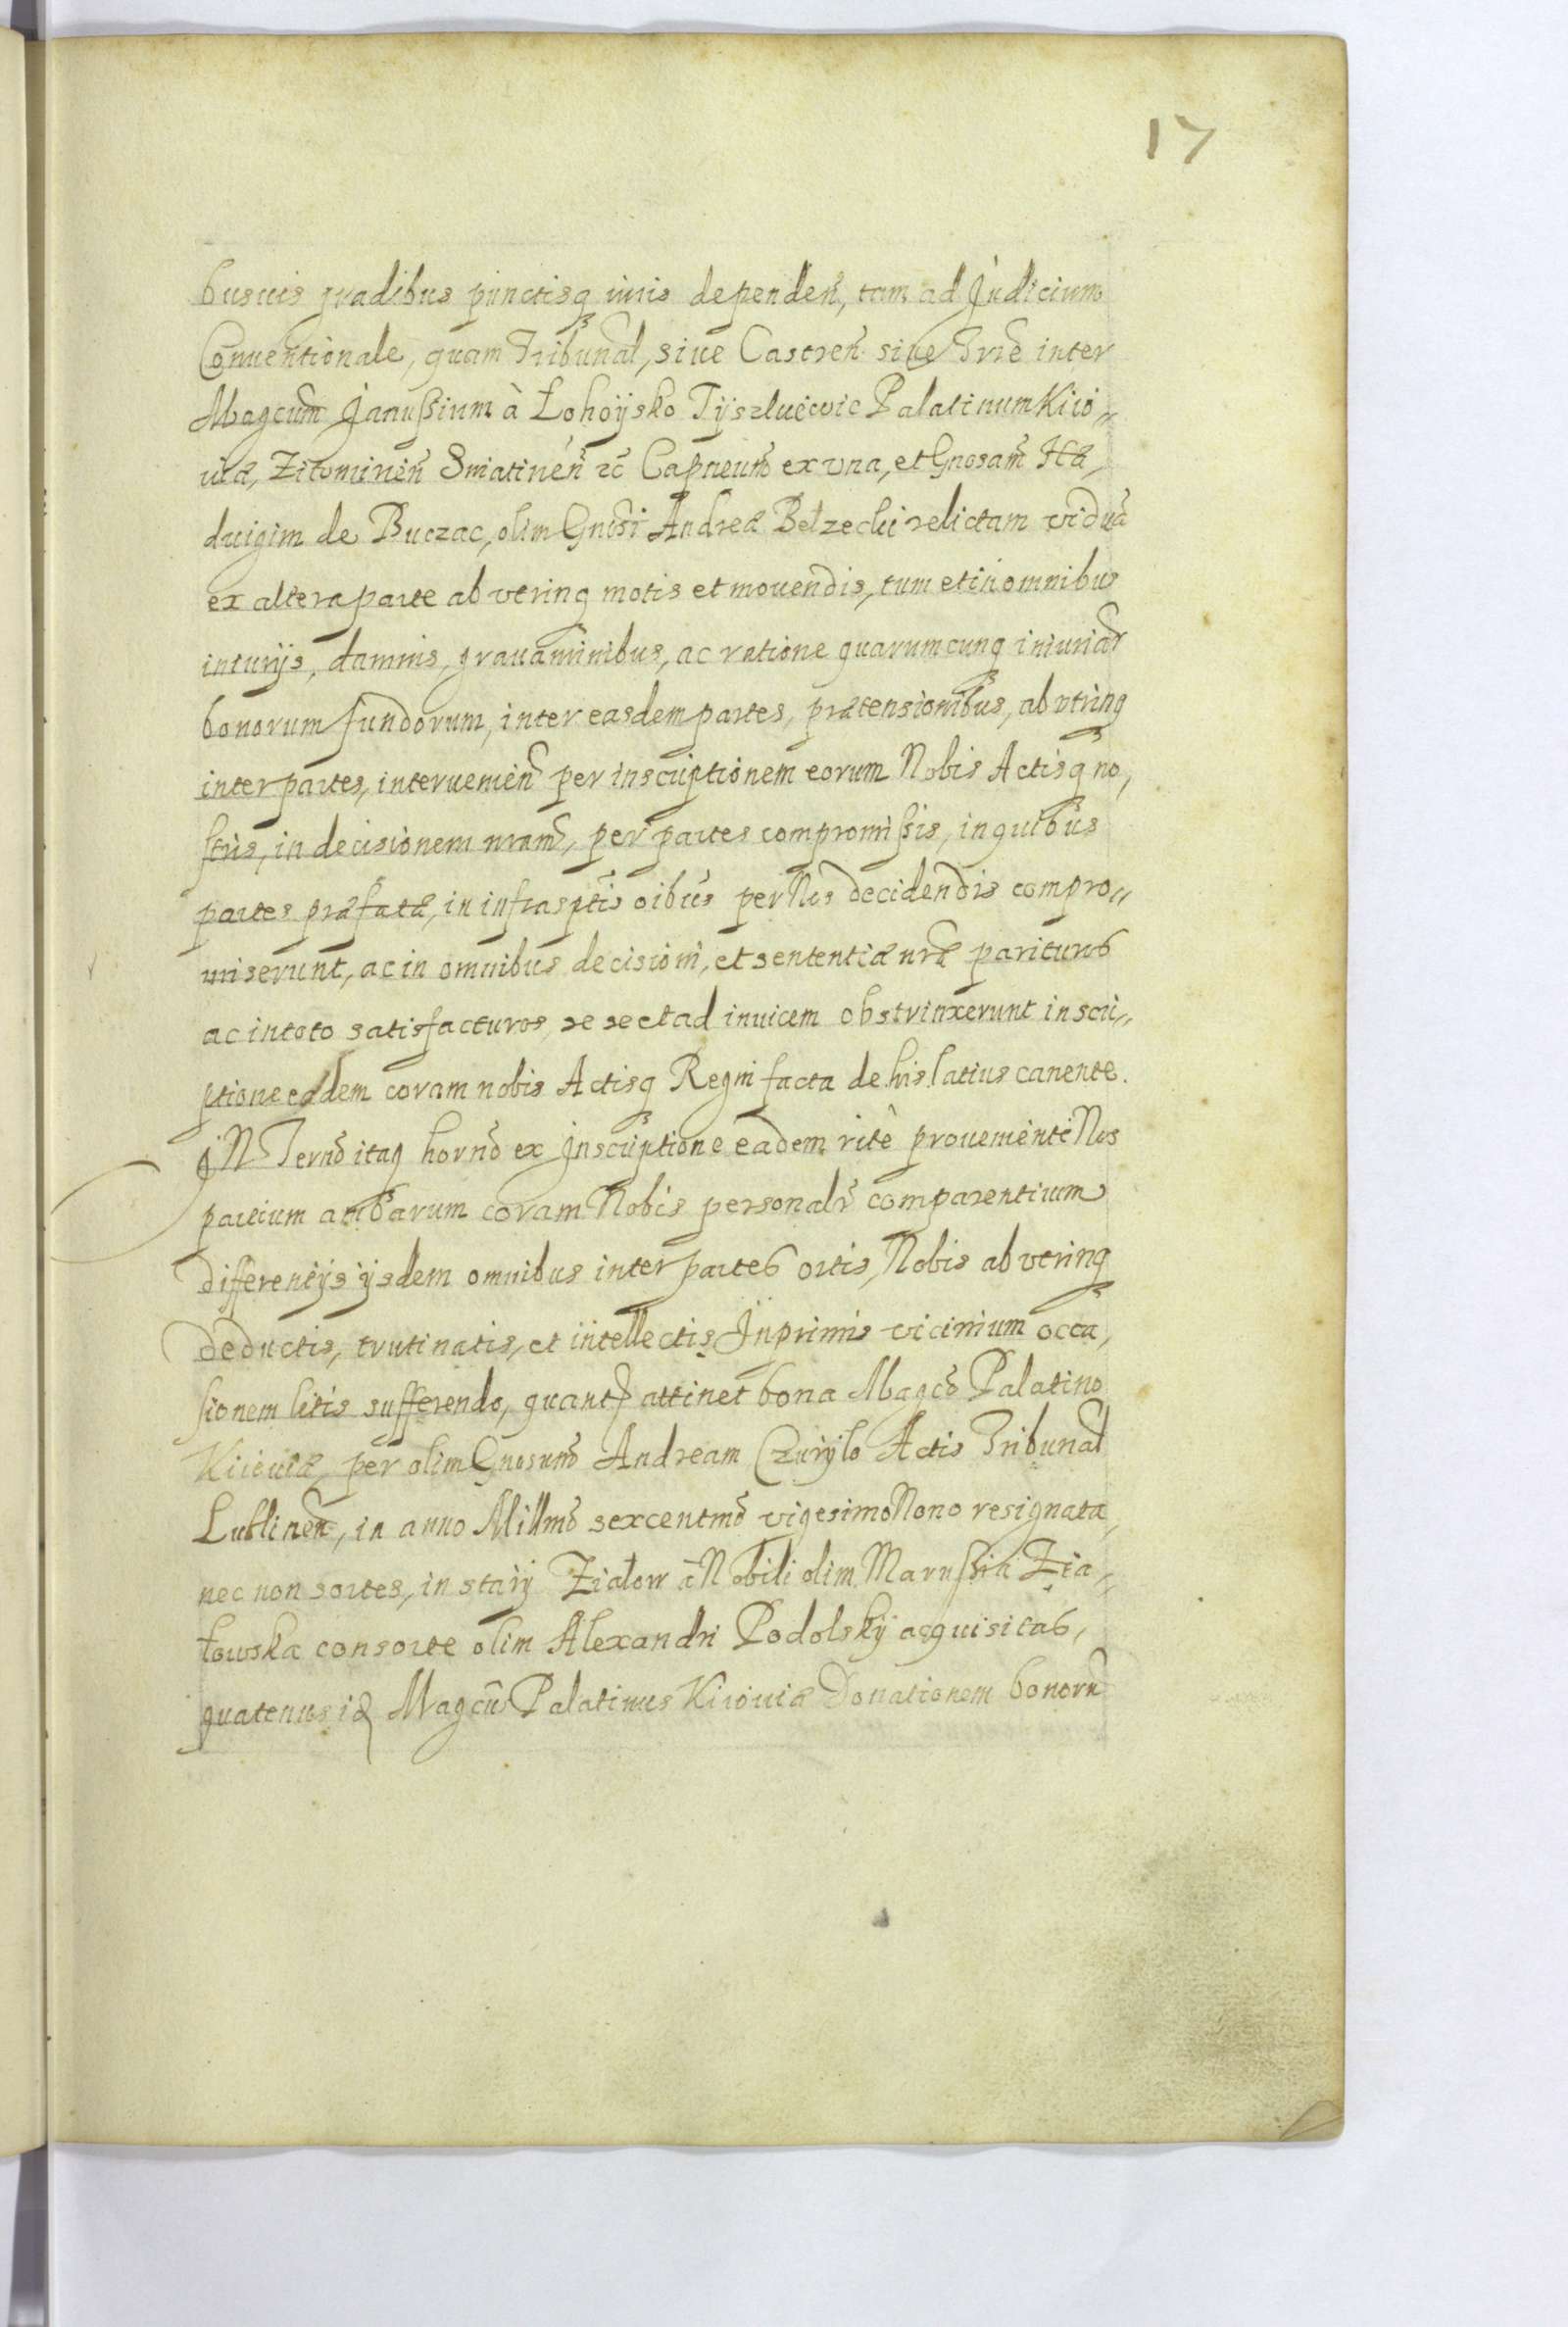 17
busuis gradibus punctisq iuris dependeñ, tam ad Judicium
Conuentionale, quam Tribunal, siue Castreñ siue Trre inter
Magcum Janussium à Łohoysko Tyszkiewic Palatinum Kiio„
uiæ, Zitomirieñ Sniatineñ zc Capneum ex vna, et Gnosam Hæ,
duigim de Buczac, olim Gnosi Andreæ Bełzecki relictam viduã
ex altera parte ab vtrinq motis et mouendis, tum et in omnibus
iniurijs, damnis, grauaminibus, ac ratione quarumcunq iniuriar
bonorum fundorum, inter easdem partes, prætensionibus, ab vtrinq
inter partes, interuenieñ per inscriptionem eorum Nobis Actisq no,
stris, in decisionem nram, per partes compromissis, in quibus
partes præfatæ, in infrasptis oibus per Nos decidendis compro„
miserunt, ac in omnibus decisioni, et sententiæ nræ parituros
ac in toto satisfacturos, se se et ad inuicem obstrinxerunt inscri„
ptione eadem coram nobis Actisq Regni facta de his latius canente.
JN Termo itaq horno ex Jnscriptione eadem ritè proueniente Nos
partium ambarum coram Nobis personalr comparentium
differentijs ijsdem omnibus inter partes ortis, Nobis ab vtrinq
deductis, trutinatis, et intellectis Jnprimis vicinium occa,
sionem litis sufferendo, quant attinet bona Magco Palatino
Kiiouiæ, per olim Gnosum Andream Czuryło Actis Tribunal
Lublineñ, in anno Millmo sexcentmo vigesimo Nono resignata,
nec non sortes, in starÿ Ziatow à Nobili olim Marussia Zia„
towska consorte olim Alexandri Podolskÿ acquisitas,
quatenus id Magcus Palatinus Kiiouiæ Donationem bonorũ